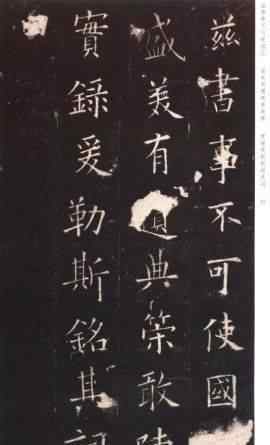 兹書事不可使國
盛美有遺典策敢
實錄爰勒斯銘其